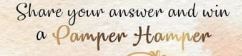 Share your answer and win
a Pamper Hamper